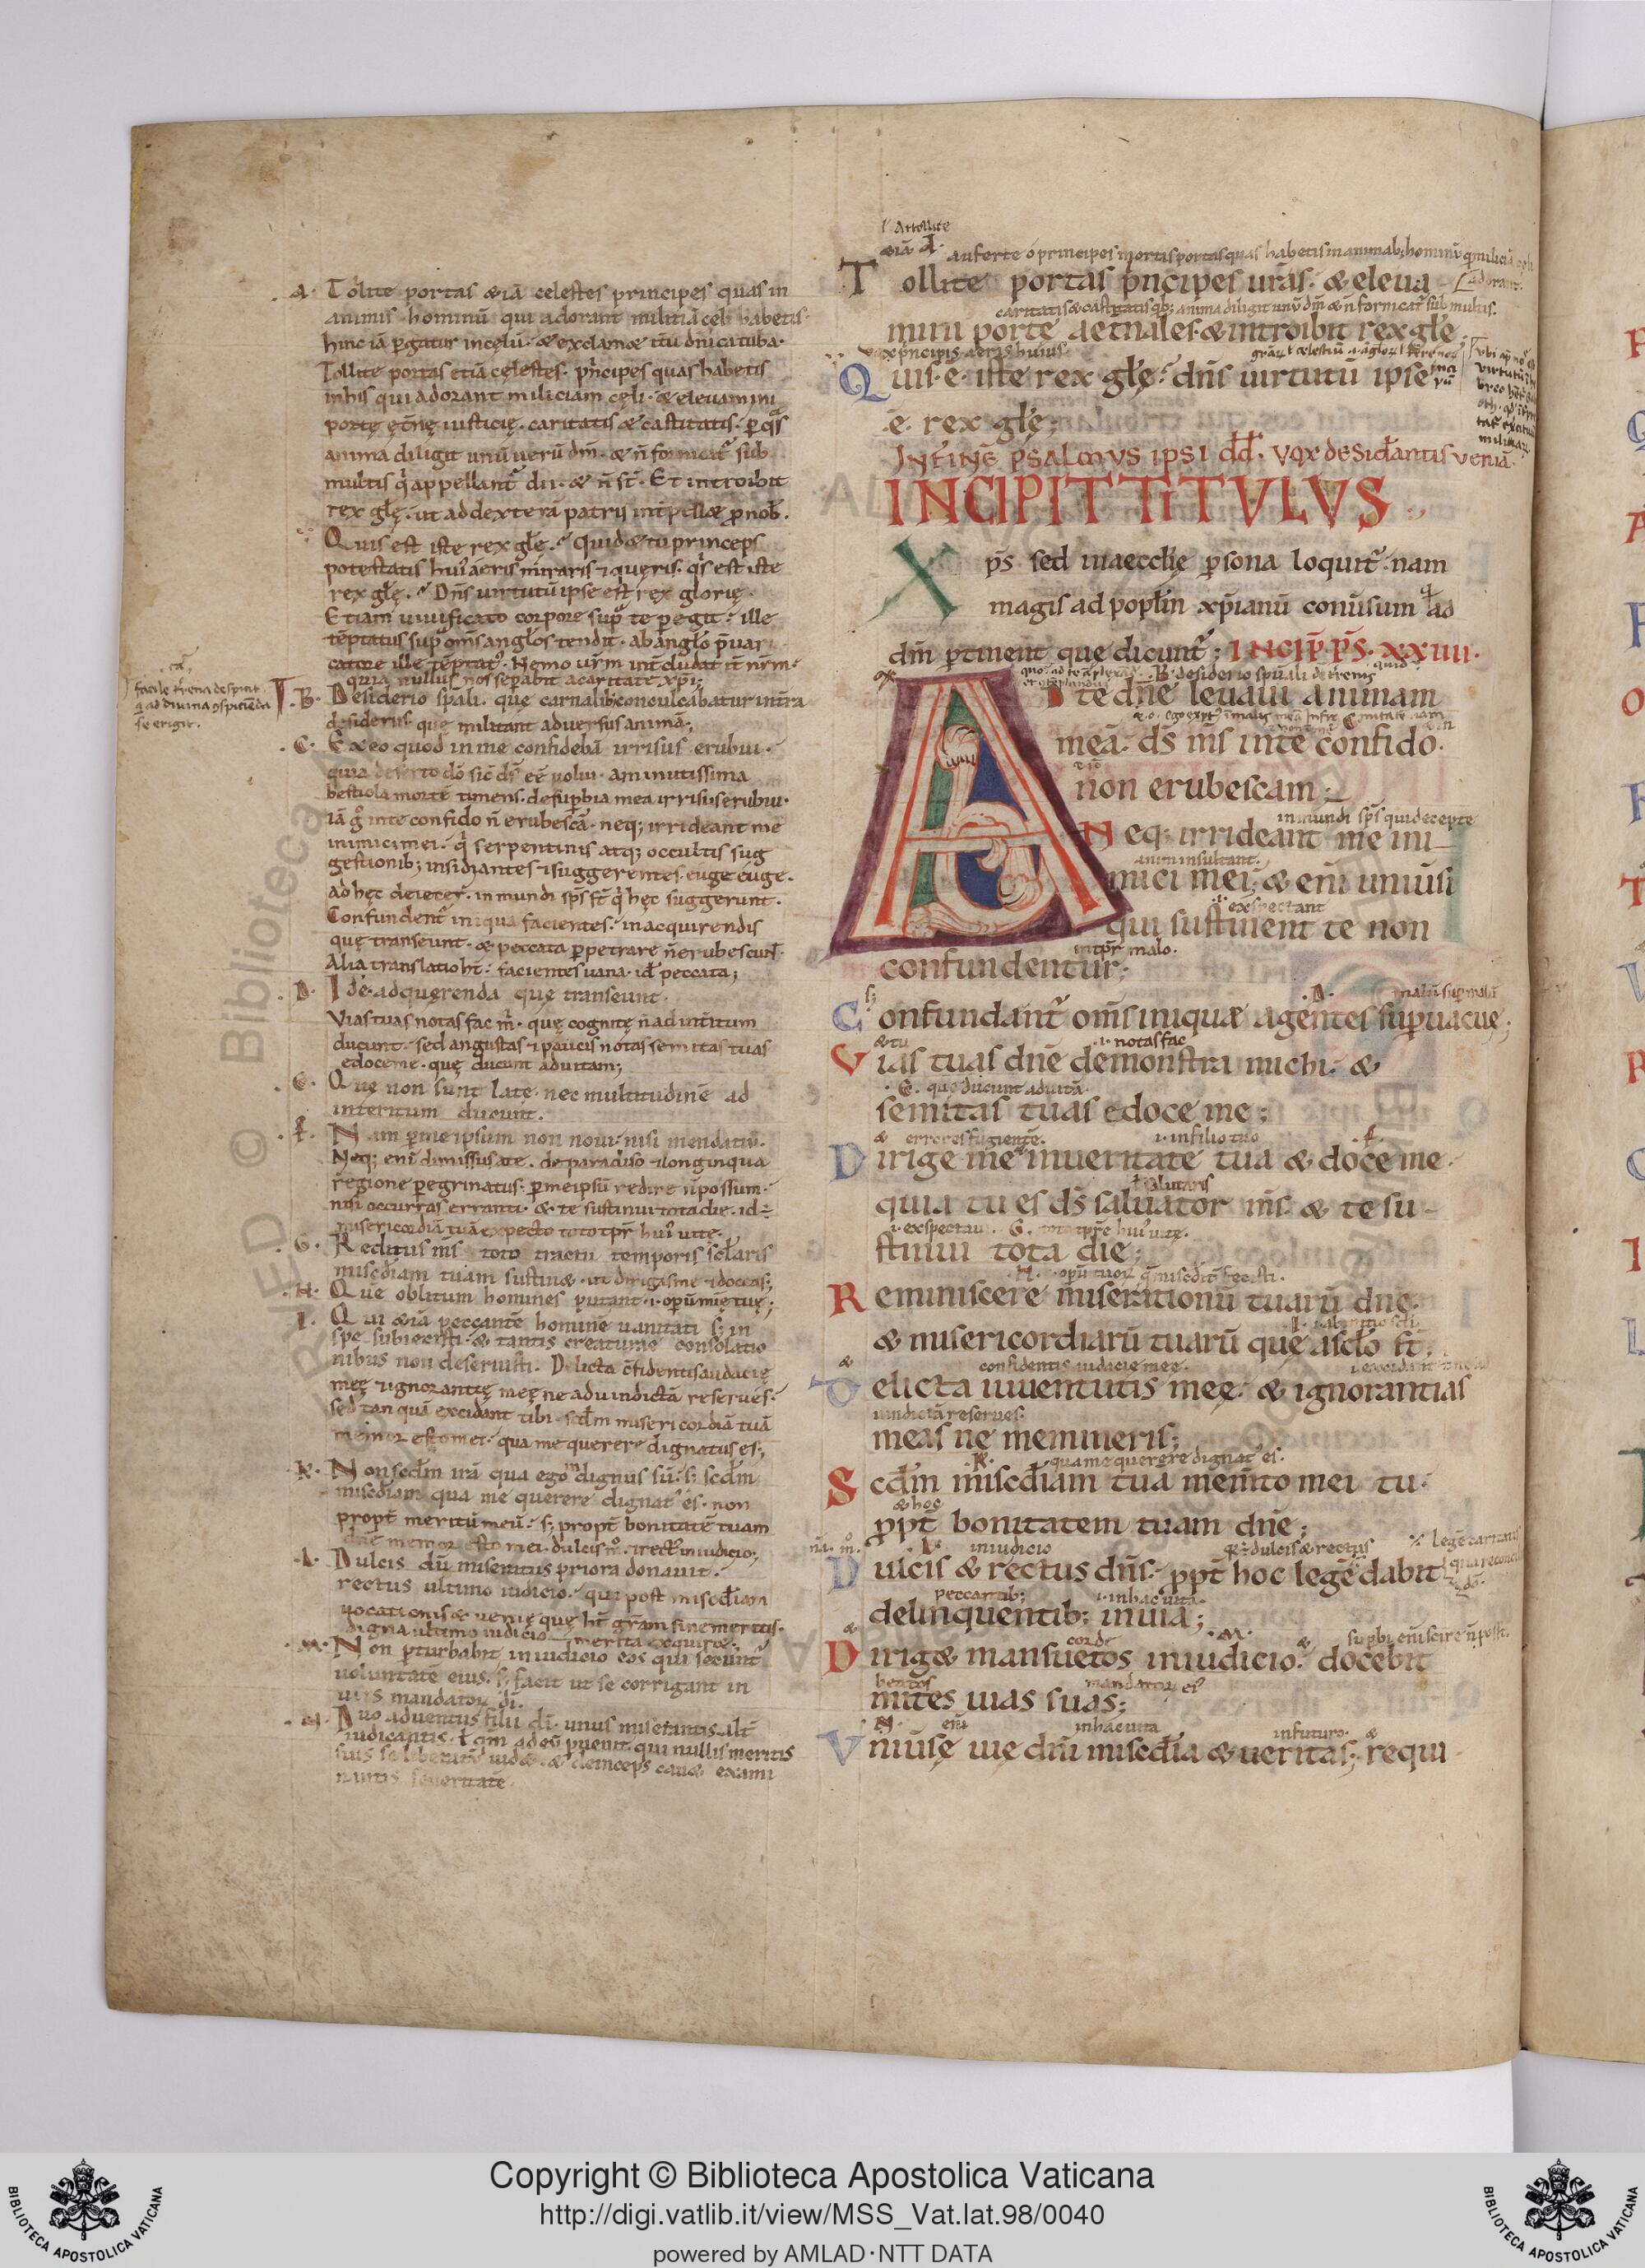 .A. Tollite portas & iā celestes principes quas in
animis hominū qui adorant militiā cęli habetis.
hinc iā pergatur in cęlū. & exclam& itū dn̄ica tuba.
Tollite portas etiā cęlestes. prīncipes quas habetis
in his qui adorant miliciam cęli. & eleuamini
portę et̄nę iusticię. caritatis & castitatis. per q̄s
anima diligit unū uerū dm̄. & n̄ fornicat᷑ sub
multis q appellant᷑ dii. & n̄ st̄. Et introibit
rex glę. ut ad dexterā patris int̄pell& p nob.
Quis est iste rex glę. Quid & tu princeps
potestatis hui aeris miraris & quęris. qs est iste
rex glę. Dn̄s uirtutū ipse est rex glorię.
Etiam uiuificato corpore sup te pegit. ille
tēptatus sup om̄s angłos tendit. ab angło pruari
catore ille tēptat᷑. Nemo urm̄ int̄cludat it̄ nrm̄.
quia nullus nos sepabit a caritate xpi;
facile trena despicit
q ad diuina cspiciēda
se erigit.
.B. Desiderio spali. que carnalib; conculcabatur intra
desideriis que militant aduersus animā;
.C. Ex eo quod in me confidebā irrisus erubui.
quia deserto dō sic ds̄ ee uolui. a minutissima
bestiola mortē timens. de supbia mea irrisus erubui.
iā g in te confido n̄ erubescā. neq; irrideant me
inimici mei. q serpentinis atq; occultis sug
gestionib; insidiantes & suggerentes. euge euge.
ad hęc deiecer. inmundi sps̄ st̄ q hęc suggerunt.
Confundent᷑ iniqua facientes. in acquirendis
quę transeunt. & peccata perpetrare n̄ erubescunt.
Alia translatio ht̄. facientes uana. id peccata;
.D. Id e. adquerenda quę transeunt.
Vias tuas notas fac m. quę cognitę n̄ ad int̄itum
ducunt. sed angustas & paucis notas semitas tuas
edoce me. quę ducunt ad uitam;
.E. Quę non sunt latę. nec multitudinē ad
interitum ducunt.
.F. Nam per me ipsum non noui. nisi mendatiū.
Neq; eni dimissus a te. de paradiso & longinqua
regione peregrinatus. per me ipsū redire n̄ possum.
nisi occurras erranti. & te sustinui tota die. id ÷
misericordiā tuā expecto toto tpr hui uitę.
.G. Reditus ms̄ toto tractu temporis sclaris
miscdiam tuam sustin&. ut dirigas me & doceas;
.H. Que oblitum homines putant. i. operū mię tuę;
.I. Qui &iā peccantē hominē uanitati s; in
spe subiecisti. & tantis creaturae consolatio
nibus non deseruisti. Delicta cfidentis audacię
męę & ignorantię męę ne ad uindictā reserues.
sed tan quā excidant tibi. scdm misericordiā tuā
memor esto mei. qua me querere dignatus es;
.K. Non scdm irā qua ego dignus sū. s; scdm
miscdiam qua me querere dignat es. non
propt meritū meū. s; propt bonitatē tuam
dn̄e memor esto mei. dulcis. & rect in iudicio;
.L. Dulcis. dū miseratus priora donauit.
rectus ultimo iudicio. qui post miscdiam
uocationis & uenię quę ht̄ gram sine meritis.
digna ultimo iudicio merita exquiret.
.M. Non perturbabit in iudicio eos qui secunt
uoluntatē eius. s; facit ut se corrigant in
uiis mandatoꝝ di.
.N. Duo aduentus filii di. unus miserantis. alt
iudicantis. qui nullis meritis
suis se liberatū uid&. & deinceps cau& exami
nantis seueritatē.
l Attollite
&iā A. auferte o principes mortis portas quas habetis in animab; hominū q miliciā cęli
Tollite portas prīncipes uras. & eleua adorant.
caritatis & castitatis qb; anima diligit unū dm̄ & n̄ fornicat᷑ sub multis.
mini portę aet̄nales. & introibit rex glę.
princ̄ipis aeris huius
Quis. e. iste rex glę. dn̄s uirtutū ipse
.e. rex glę;
IN FINĒ PSALMVS IPSI DD. VOX desidantis ueniā.
INCIPIT TITVLVS
Xps̄ sed in aecclię psona loquit᷑. nam
magis ad poplm̄ xpianū conūsum ad
dm̄ pertinent que dicunt᷑; INCIP PS. XXIIII.
B. desiderio spūali de trenis
Ad te dn̄e leuaui animam
meā. ds̄ ms̄ in te confido.
non erubescam;
inmundi sps̄ qui decepte
Neq; irrideant me ini
anim insultant.
mici mei; & eni uniūsi
.i. exspectant
qui sustinent te non
in tpr malo.
confundentur;
.D. malū sup malū
Confundant᷑ om̄s iniquæ agentes supuacuę;
& tu .i. notas fac
Vias tuas dn̄e demonstra michi. &
.E. que ducunt ad uitā.
semitas tuas edoce me;
& errores fugientē. .i. in filio tuo .F.
Dirige me in ueritate tua & doce me.
salutaris
quia tu es ds̄ saluator ms̄. & te su-
.i. exspectaui .G. toto tpre hui uitę.
stinui tota die;
.H. operū tuoꝝ
Reminiscere miserationū tuarū dn̄e.
& misericordiarū tuarū que a sclo st̄.
& confidentis audacię meę.
Delicta iuuentutis meę. & ignorantias
uindictā reserues.
meas ne memineris;
.K. qua me querere dignat es.
Scdm miscdiam tuā memto mei tu.
& hoc
ppt bonitatem tuam dn̄e;
.L. in iudicio dulcis & rectus legē caritatis
Dulcis & rectus dn̄s. ppt hoc legē dabit
peccantib; .i. in hac uita.
delinquentib; in uia;
& corde .M. & supbi eni scire n̄ poss.
Dirig& mansuetos in iudicio. docebit
beatos mandatoꝝ ei
mites uias suas;
.N. enī in hac uita in futuro. &
Vniūsę uię dn̄i miscdia & ueritas; requi
Biblioteca
Copyright © Biblioteca Apostolica Vaticana
http://digi.vatlib.it/view/MSS_Vat.lat.98/0040
powered by AMLAD·NTT DATA
BIBLIOTECA APOSTOLICA VATICANA
BIBLIOTECA APOSTOLICA VATICANA